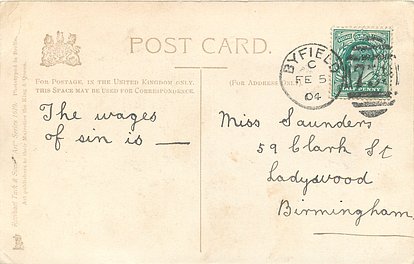 POST CARD.
FOR POSTAGE, IN THE UNITED KINGDOM ONLY,
THIS SPACE MAY BE USED FOR CORRESPONDENCE.
(FOR ADDRESS ONLY.)
BYFIELD
C
FE 5
04
HALF PENNY
The wages
of sin is —
Miss Saunders
59 Clark St
Ladywood
Birmingham
Raphael Tuck & Sons'
Art Publishers to their Majesties the King & Queen.